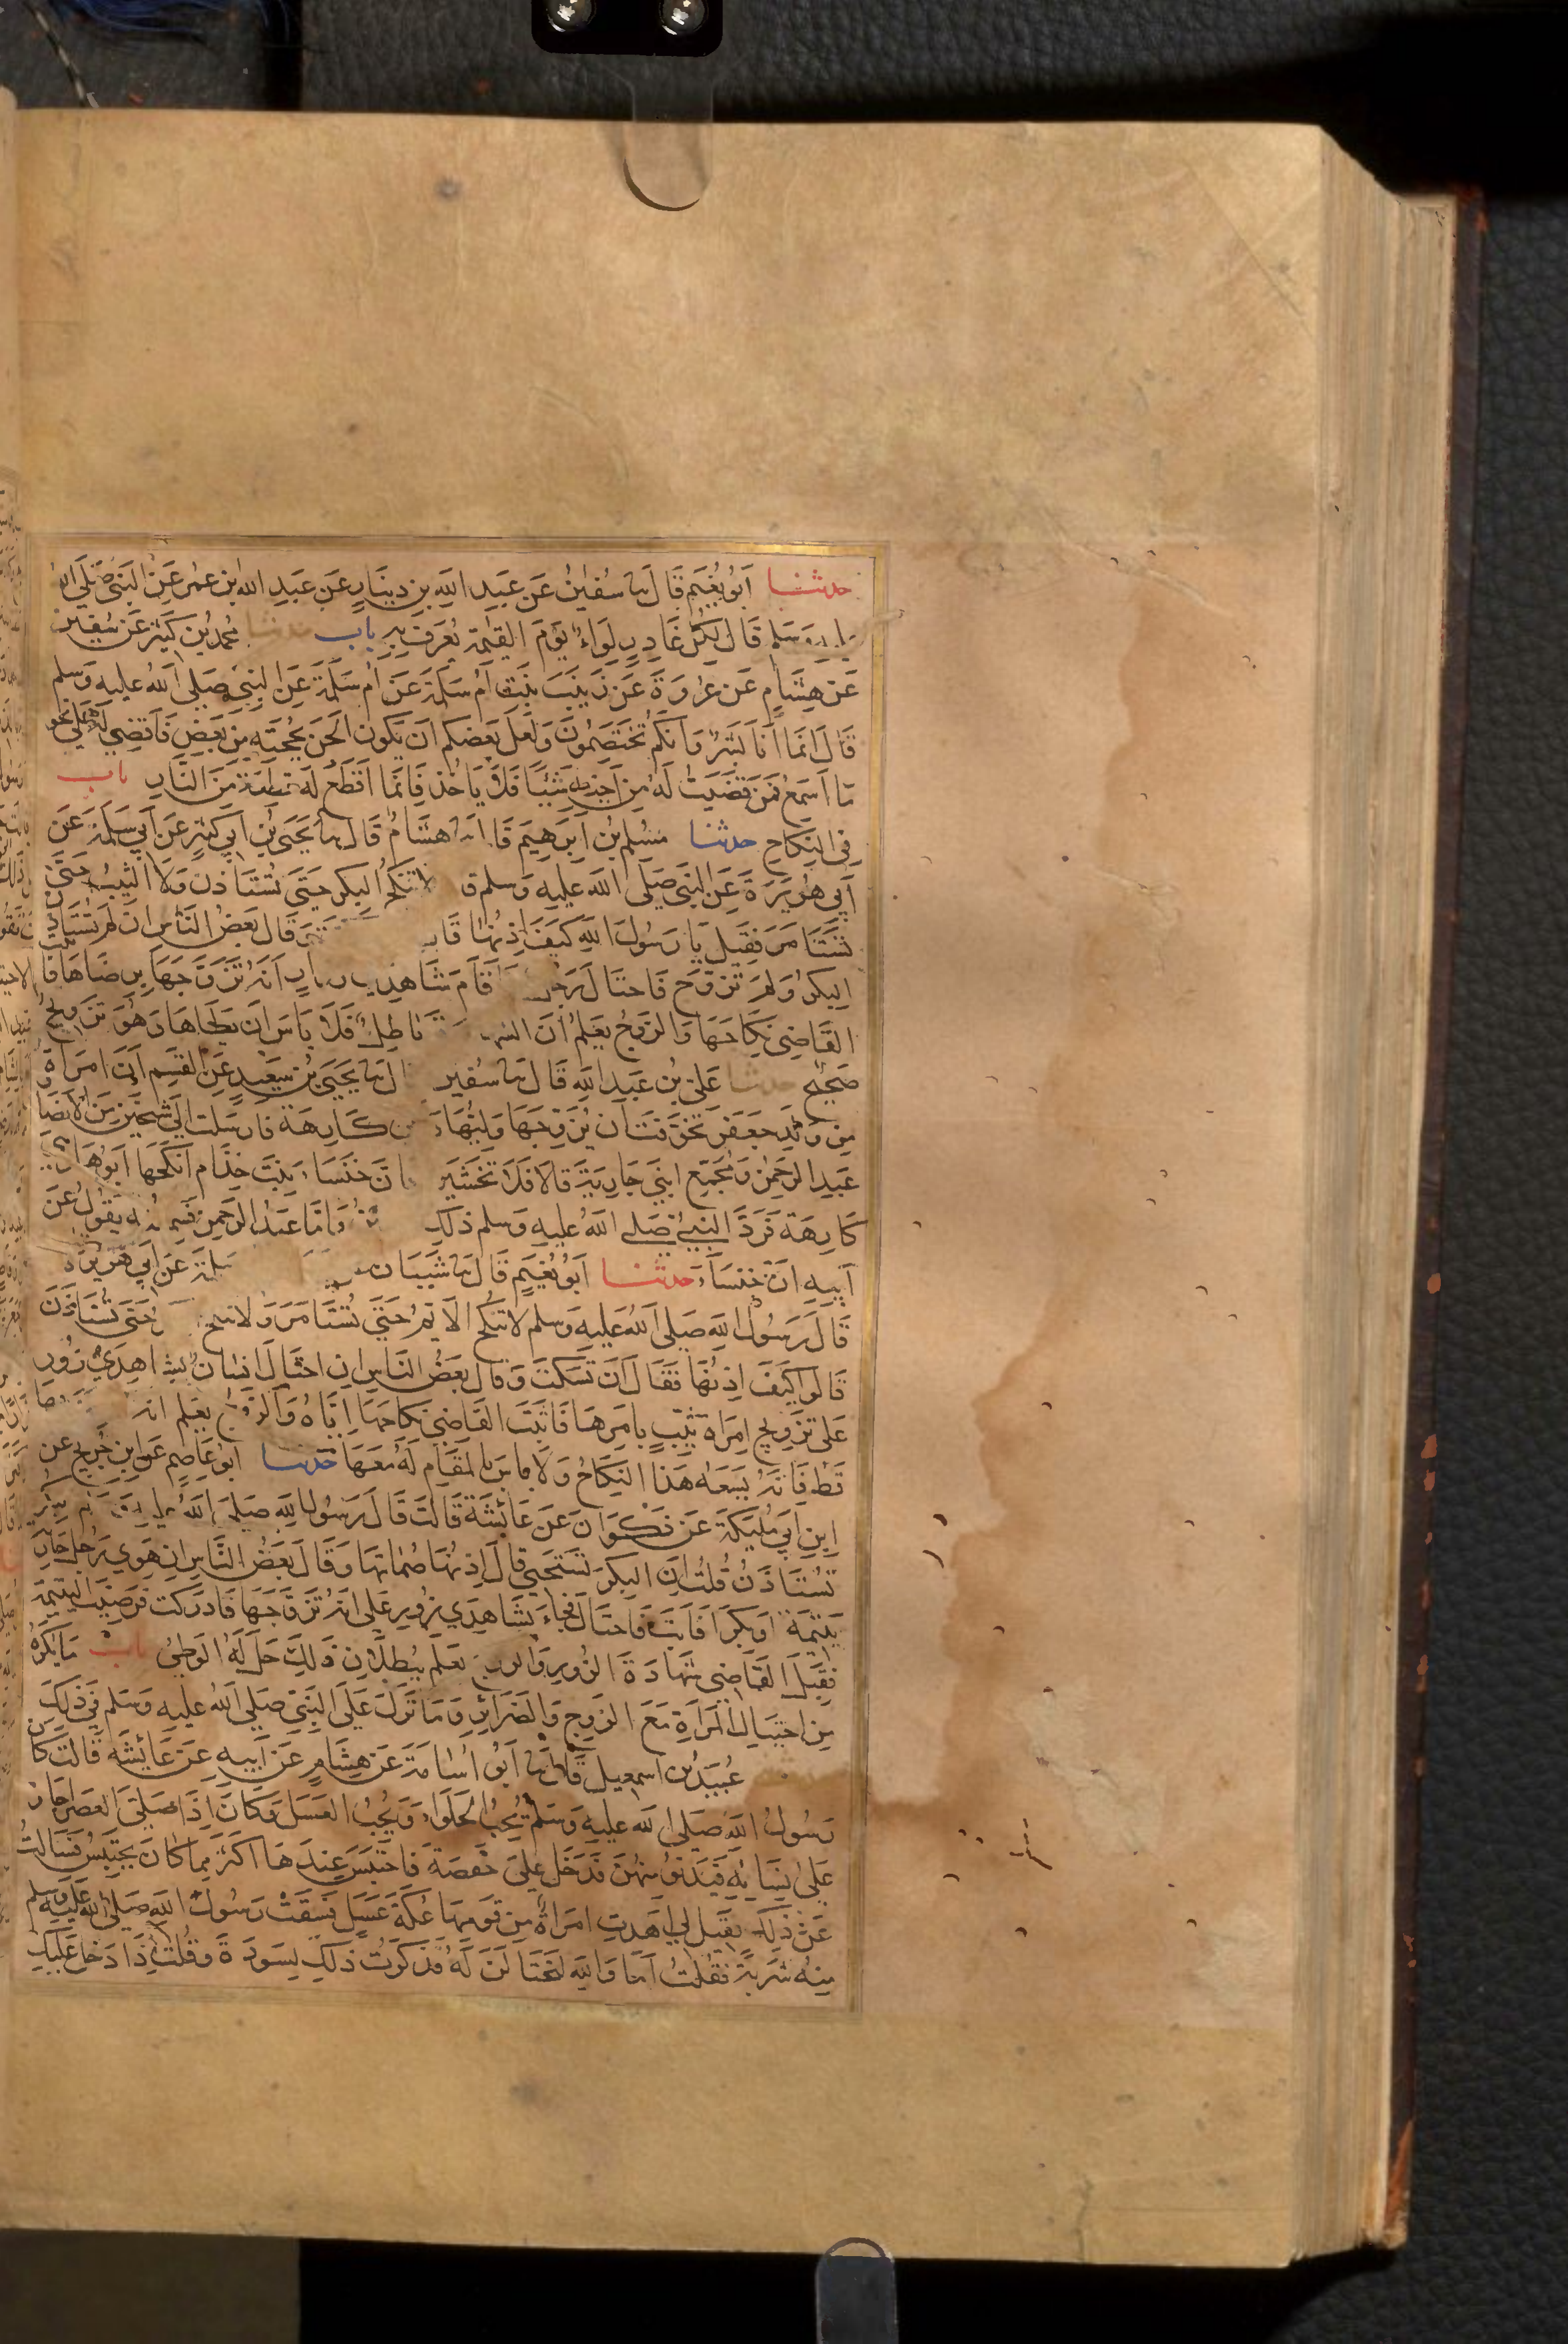 حدثنا أبو نعيم قال نا سفين عن عبد الله بن دينار عن عبد الله بن عمر عن النبي صلى الله
عليه وسلم قال لكل غادر لواء يوم القيمة يعرف به باب حدثنا محمد بن كثير عن سفين
عن هشام عن عروة عن زينب بنت أم سلمة عن أم سلمة عن النبي صلى الله عليه وسلم
قال إنما أنا بشر وإنكم تختصمون ولعل بعضكم أن يكون ألحن بحجته من بعض فأقضي له على نحو
ما أسمع فمن قضيت له من أخيه شيئا فلا يأخذ فإنما أقطع له قطعة من النار باب
في النكاح حدثنا مسلم بن إبرهيم قا نا هشام قال نا يحيى بن أبي كثير عن أبي سلمة عن
أبي هريرة عن النبي صلى الله عليه وسلم ق لا تنكح البكر حتى تستأذن ولا الثيب حتى
تستأمر فقيل يا رسول الله كيف إذنها قا وقال بعض الناس إن لم تستأذن
البكر ولم تزوج فاحتال رجل فأقام شاهدي أنه تزوجها برضاها فأثبت
القاضي نكاحها والزوج يعلم أن الشهادة باطلة فلا بأس أن يطأها وهو تزويج
صحيح حدثنا علي بن عبد الله قال نا سفين ل نا يحيى بن سعيد عن القسم أن امرأة
من ولد جعفر تخوفت أن يزوجها وليها كارهة فأرسلت إلى شيخين من الأنصار
عبد الرحمن ومجمع ابني جارية قالا فلا تخشين فإن خنساء بنت خذام أنكحها أبوها
كارهة فرد النبي صلى الله عليه وسلم ذلك وأما عبد الرحمن فسمعته يقول عن
أبيه إن خنساء حدثنا أبو نعيم قال نا شيبان سلمة عن أبي هريرة
قال رسول الله صلى الله عليه وسلم لا تنكح الأيم حتى تستأمر ولا تنكح حتى تستأذن
قالوا كيف إذنها فقال أن تسكت وقال بعض الناس إن احتال إنسان بشاهدي زور
على تزويج امرأة ثيب بأمرها فأثبت القاضي نكاحها إياه والزوج يعلم أنه
قط فإنه يسعه هذا النكاح ولا بأس بالمقام له معها حدثنا أبو عاصم عن ابن جريج عن
ابن أبي مليكة عن ذكوان عن عائشة قالت قال رسول الله صلى الله عليه وسلم البكر
تستأذن قلت إن البكر تستحيي قال إذنها صماتها وقال بعض الناس إن هوي رجل جارية
يتيمة أو بكرا فأبت فاحتال فجاء بشاهدي زور على أنه تزوجها فأدركت فرضيت اليتيمة
فقبل القاضي شهادة الزور والزوج يعلم ببطلان ذلك حل له الوطئ باب ما يكره
من احتيال المرأة مع الزوج والضرائر وما نزل على النبي صلى الله عليه وسلم في ذلك
عبيد بن اسمعيل قال نا أبو أسامة عن هشام عن أبيه عن عائشة قالت كان
رسول الله صلى الله عليه وسلم يحب الحلواء ويحب العسل وكان إذا صلى العصر أجاز
على نسائه فيدنو منهن فدخل على حفصة فاحتبس عندها أكثر مما كان يحتبس فسألت
عن ذلك فقيل لي أهدت امرأة من قومها عكة عسل فسقت رسول الله صلى الله عليه وسلم
منه شربة فقلت أما والله لنحتالن له فذكرت ذلك لسودة وقلت إذا دخل عليك